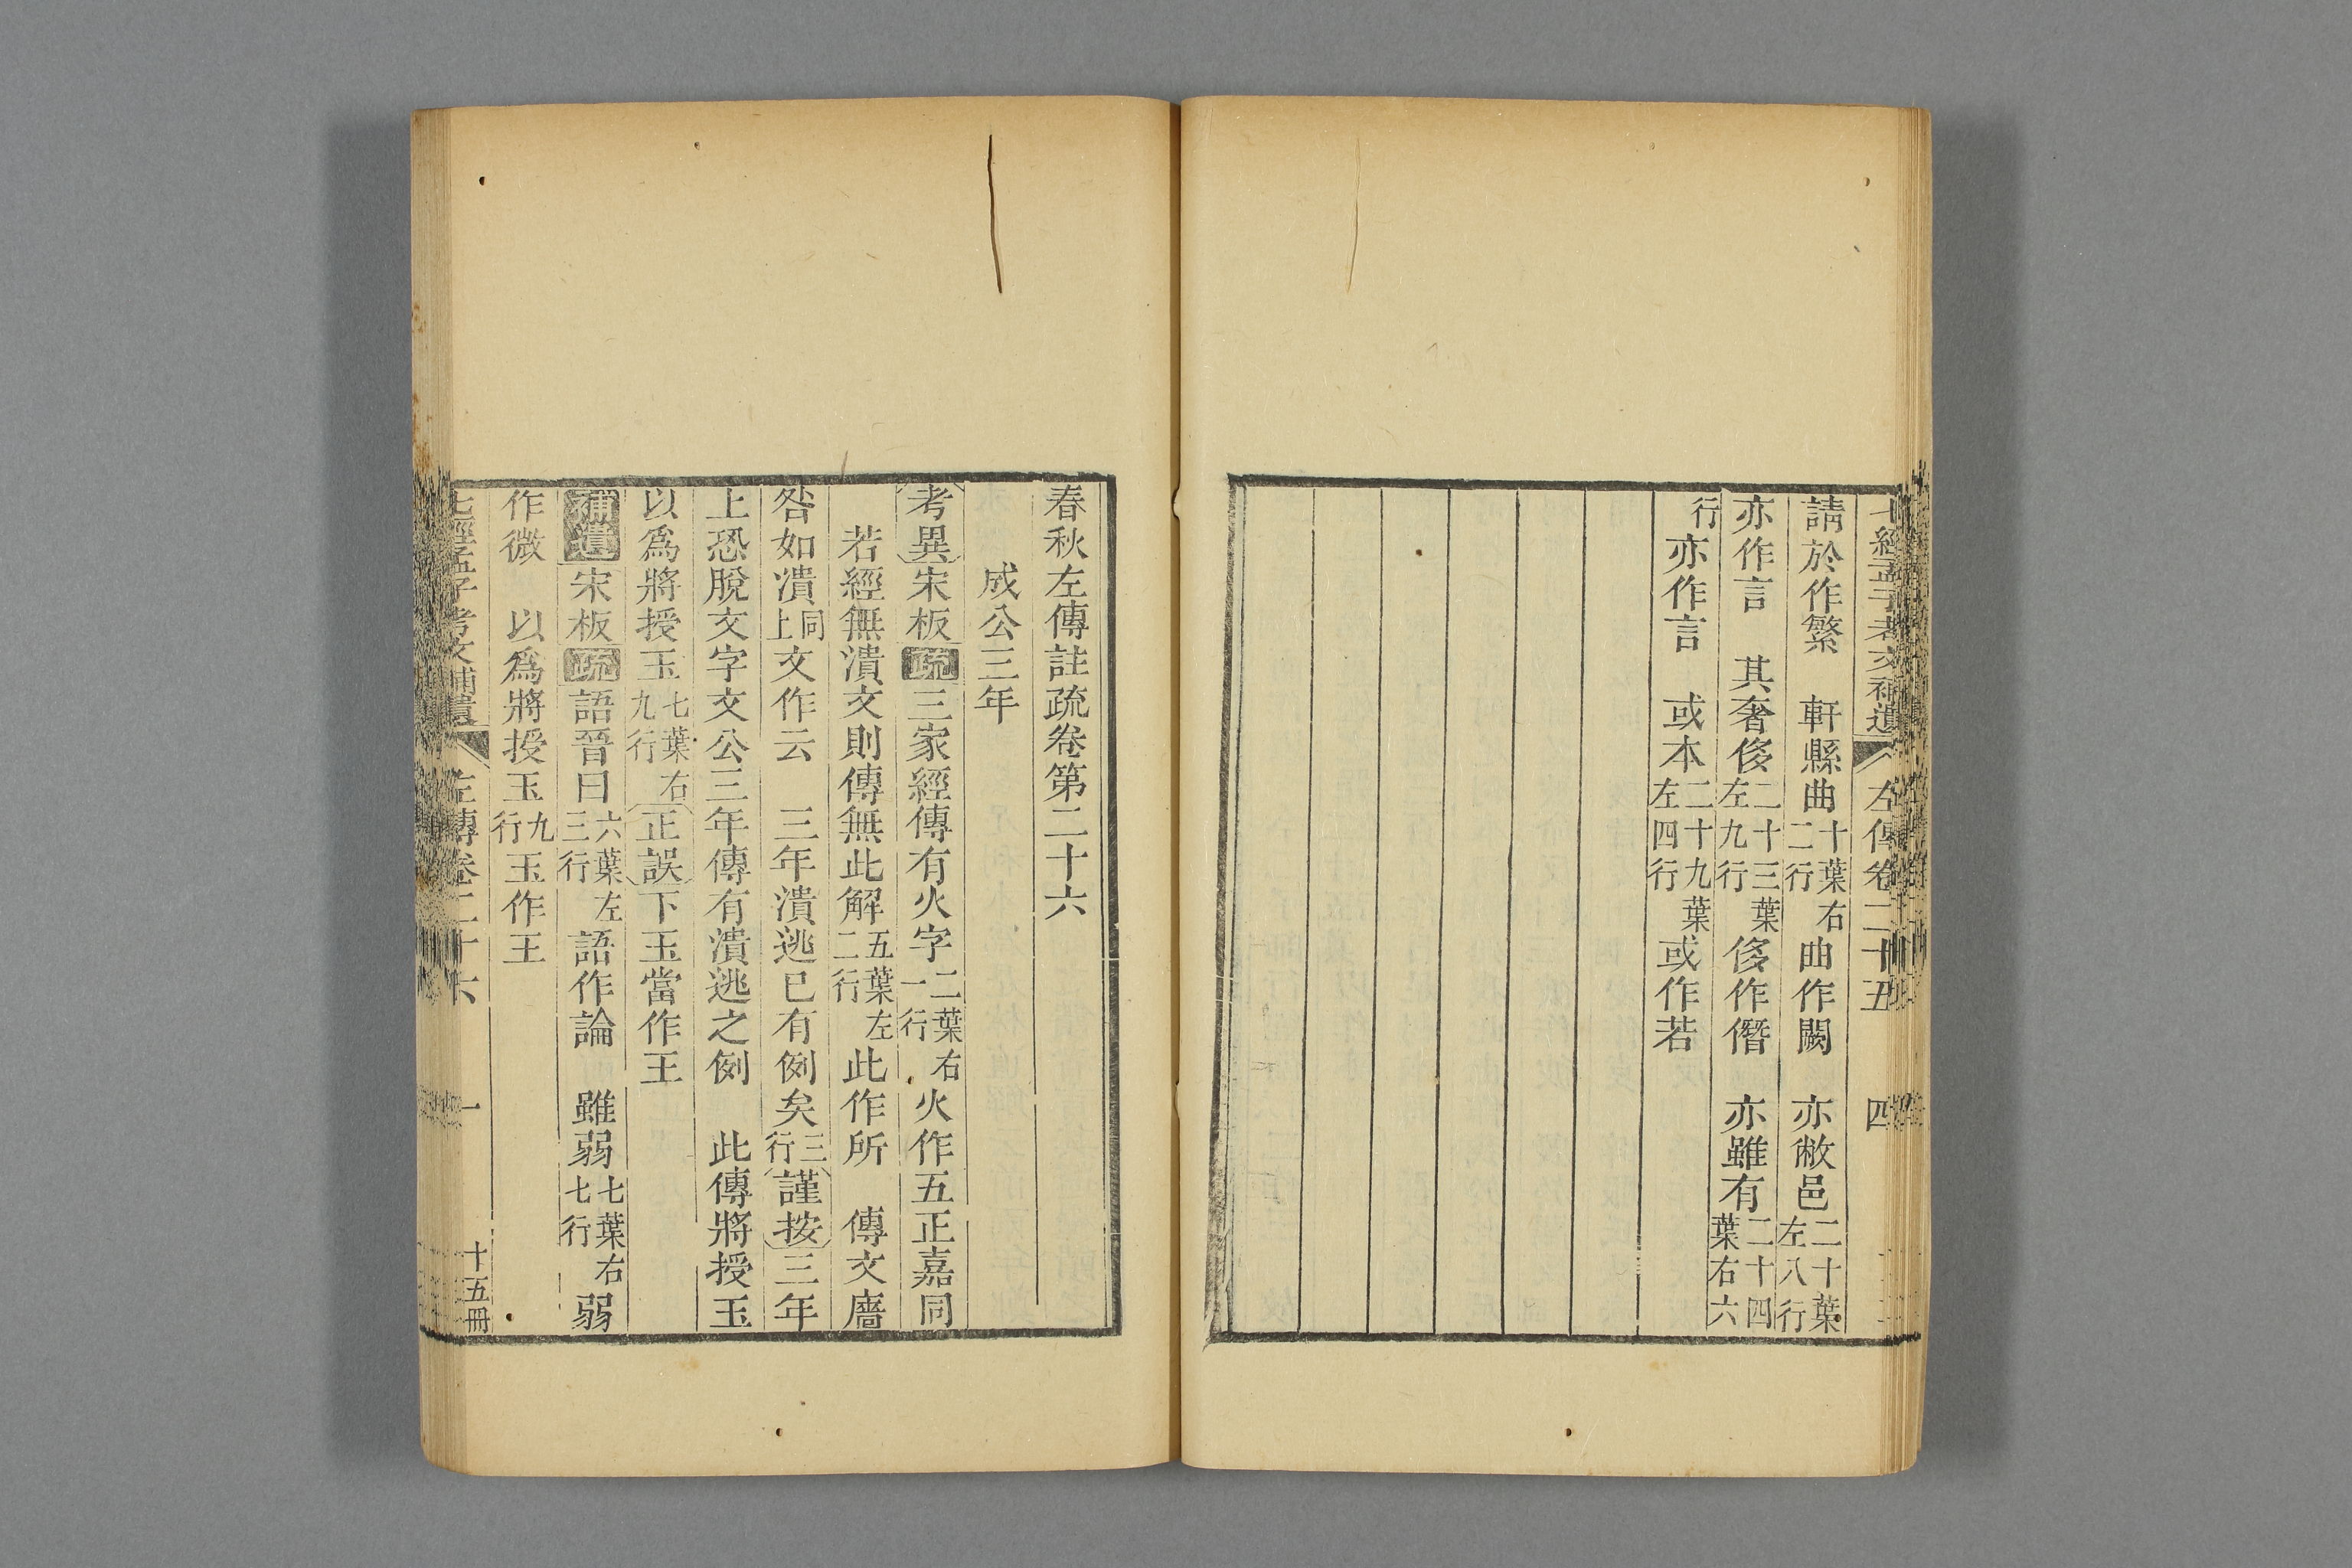 七經孟子考文補遺 左傳卷二十五 四
請於作繁 軒縣曲十葉右二行曲作闕 亦敝邑二十葉左八行
亦作言 其奢侈二十三葉左九行侈作僭 亦雖有二十四葉右六
行亦作言 或本二十九葉左四行或作若
春秋左傳註疏卷第二十六
成公三年
考異宋板疏三家經傳有火字二葉右一行火作五正嘉同
若經無潰文則傳無此解五葉左二行此作所 傳文廧
咎如潰同上文作云 三年潰逃已有例矣三行謹按三年
上恐脫文字文公三年傳有潰逃之例 此傳將授玉
以爲將授玉七葉右九行正誤下玉當作王
補遺宋板疏語晉曰六葉左三行語作論 雖弱七葉右七行弱
作微 以爲將授玉九行玉作王
七經孟子考文補遺 左傳卷二十六 一 十五冊